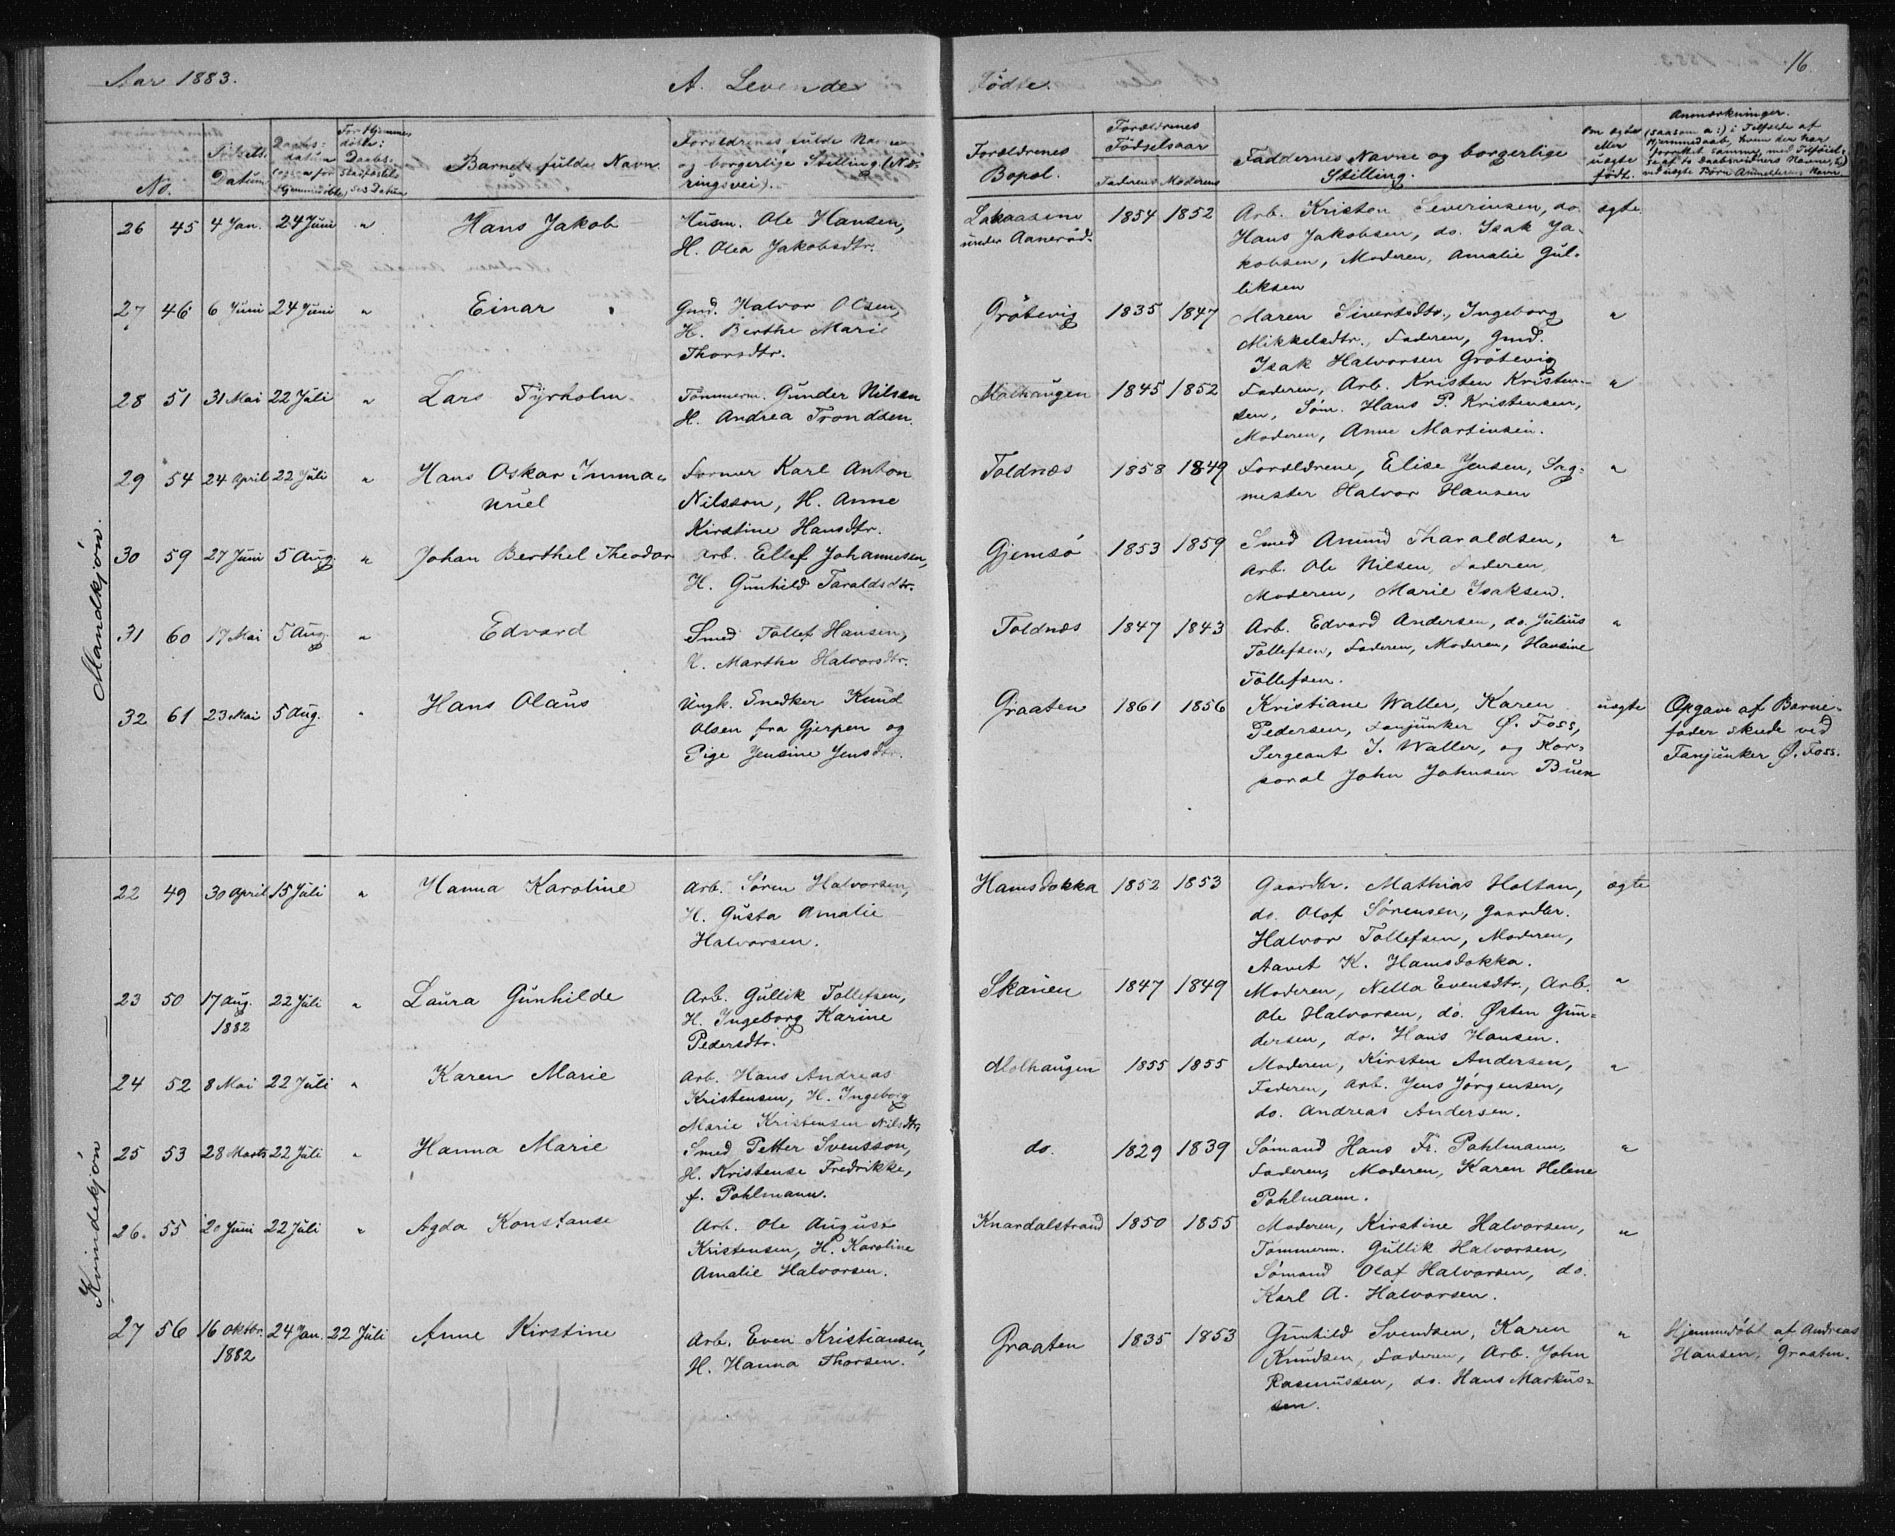 Aar 1883. A. Levende Fødte. 16
No. Fødsels-Datum Barnets fulde Navn. Forældrenes fulde Navne og borgerlige Stilling (Næringsvei). Forældrenes Bopæl. Forældrenes Fødselsaar Faderens Moderens Faddernes Navne og borgerlige Stilling. Om ægte eller uægte født. Anmærkninger.
Mandkjøn.
26 45 4 Jan. 24 Juni " Hans Jakob Husm. Ole Hansen, 1854 1852 Arb. Kristen Severinsen, do. ægte
H. Olea Jakobsdtr. under Aanerød. Hans Jakobsen, do. Isak Ja-
kobsen, Moderen, Amalie Gul-
liksen
27 46 6 Juni 24 Juni " Einar Gmd. Halvor Olsen, Grøtevig 1835 1847 Maren Sivertsdtr., Ingeborg "
H. Berthe Marie Mikkelsdtr., Faderen, Gmd.
Thorsdtr. Isak Halvorsen Grøtevig
28 51 31 Mai 22 Juli " Lars Tyrholm Tømmerm. Gunder Nilsen Molhaugen 1845 1852 Faderen, Arb. Kristen Kristen- "
H. Andrea Trondsen. sen, Søm. Hans P. Kristensen,
Moderen, Anne Martinsen.
29 54 24 April 22 Juli " Hans Oskar Imma- Former Karl Anton Toldnæs 1858 1849 Forældrene, Elise Jensen, Sag- "
nuel Nilsson, H. Anne mester Halvor Hansen
Kirstine Hansdtr.
30 59 27 Juni 5 Aug " Johan Berthel Theodor Arb. Ellef Johannesen, Gjemsø 1853 1859 Smed Amund Tharaldsen, "
H. Gunhild Taraldsdtr. Arb. Ole Nilsen, Faderen,
Moderen, Marie Isaksen.
31 60 17 Mai 5 Aug " Edvard Smed Tollef Hansen, Toldnæs 1847 1843 Arb. Edvard Andersen, do. Julius "
H. Marthe Halvorsdtr. Tollefsen, Faderen, Moderen, Hansine
Tollefsen.
32 61 23 Mai 5 Aug. " Hans Olaus Ungk. Snedker Knud Graaten 1861 1856 Kristiane Waller, Karen uægte Opgave af Barne-
Olsen fra Gjerpen og Pedersen, Fanjunker Ø. Foss, fader skede ved
Pige Jensine Jensdtr. Sergeant J. Waller, og Kor- Fanjunker Ø. Foss.
poral John Johnsen Buen
Kvindekjøn
22 49 30 April 15 Juli " Hanna Karoline Arb. Søren Halvorsen, Hamsdokka 1852 1853 Gaardbr. Mathias Holtan, ægte
H. Gusta Amalie do. Olof Sørensen, Gaardbr.
Halvorsen. Halvor Tollefsen, Moderen,
Aavet K. Hamsdokka.
23 50 17 Aug. 22 Juli " Laura Gunhilde Arb. Gullik Tollefsen, Skauen 1847 1849 Moderen, Nella Evensdtr., Arb. "
1882 H. Ingeborg Karine Ole Halvorsen, do. Østen Gun-
Pedersdtr. dersen, do. Hans Hansen.
24 52 8 Mai 22 Juli " Karen Marie Arb. Hans Andreas Molhaugen 1855 1855 Moderen, Kirsten Andersen, "
Kristensen, H. Ingeborg Faderen, Arb. Jens Jørgensen,
Marie Kristensen Nilsdtr. do. Andreas Andersen.
25 53 28 Marts 22 Juli " Hanna Marie Smed Petter Svensson, do. 1829 1839 Sømand Hans Fr. Pahlmann, "
H. Kristense Fredrikke, Faderen, Moderen, Karen Helene
f. Pohlmann. Pohlmann.
26. 55 20 Juni 22 Juli " Agda Konstanse Arb. Ole August Knardalstrand 1850 1855 Moderen, Kirstine Halvorsen, "
Kristensen, H. Karoline Tømmerm. Gullik Halvorsen,
Amalie Halvorsen. Sømand Olaf Halvorsen, do.
Karl A. Halvorsen.
27 56 16 Oktbr. 24 Jan. 22 Juli Anne Kirstine Arb. Even Kristiansen, Graaten 1835 1853 Gunhild Svendsen, Karen " Hjemmedøbt af Andreas
1882 H. Hanna Thorsen. Knudsen, Faderen, Arb. John Hansen, Graaten.
Rasmussen, do. Hans Markus-
sen.